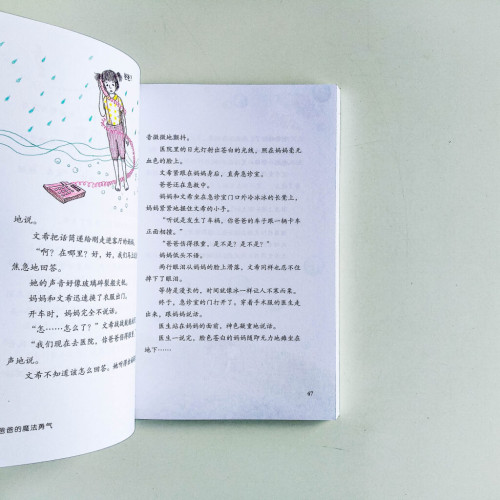 地说。
文希把话筒递给刚走进客厅的妈妈。
“啊？在哪里？好，好，我们马上
焦急地回答。
她的声音好像玻璃碎裂般
妈妈和文希迅速换了衣服出门。
开车时，妈妈完全不说话。
“怎……怎么了？”文希战战兢兢
“我们现在去医院，你爸爸伤得
声地说。
文希不知道该怎么回答。她听得
爸爸的魔法勇气
音微微地颤抖。
医院里的日光灯射出苍白的光线，照在妈妈毫无
血色的脸上。
文希紧跟在妈妈后，直奔急诊室。
爸爸还在急救中。
妈妈和文希坐在急诊室门口外冷冰冰的长凳上，
妈妈紧紧地握住文希的小手。
“听说是发生了车祸，你爸爸的车子跟一辆卡车
正面相撞。”
“爸爸伤得很重，是不是？是不是？”
妈妈低头不语。
两行眼泪从妈妈的脸上滑落，文希同样也忍不住
掉下了眼泪。
等待是漫长的，时间就像冰一样让人不寒而栗。
终于，急诊室的门打开了，穿着手术服的医生走
出来，跟妈妈说话。
医生站在妈妈的面前，神色凝重地说话。
医生一说完，脸色苍白的妈妈随即无力地瘫坐在
地下……
47